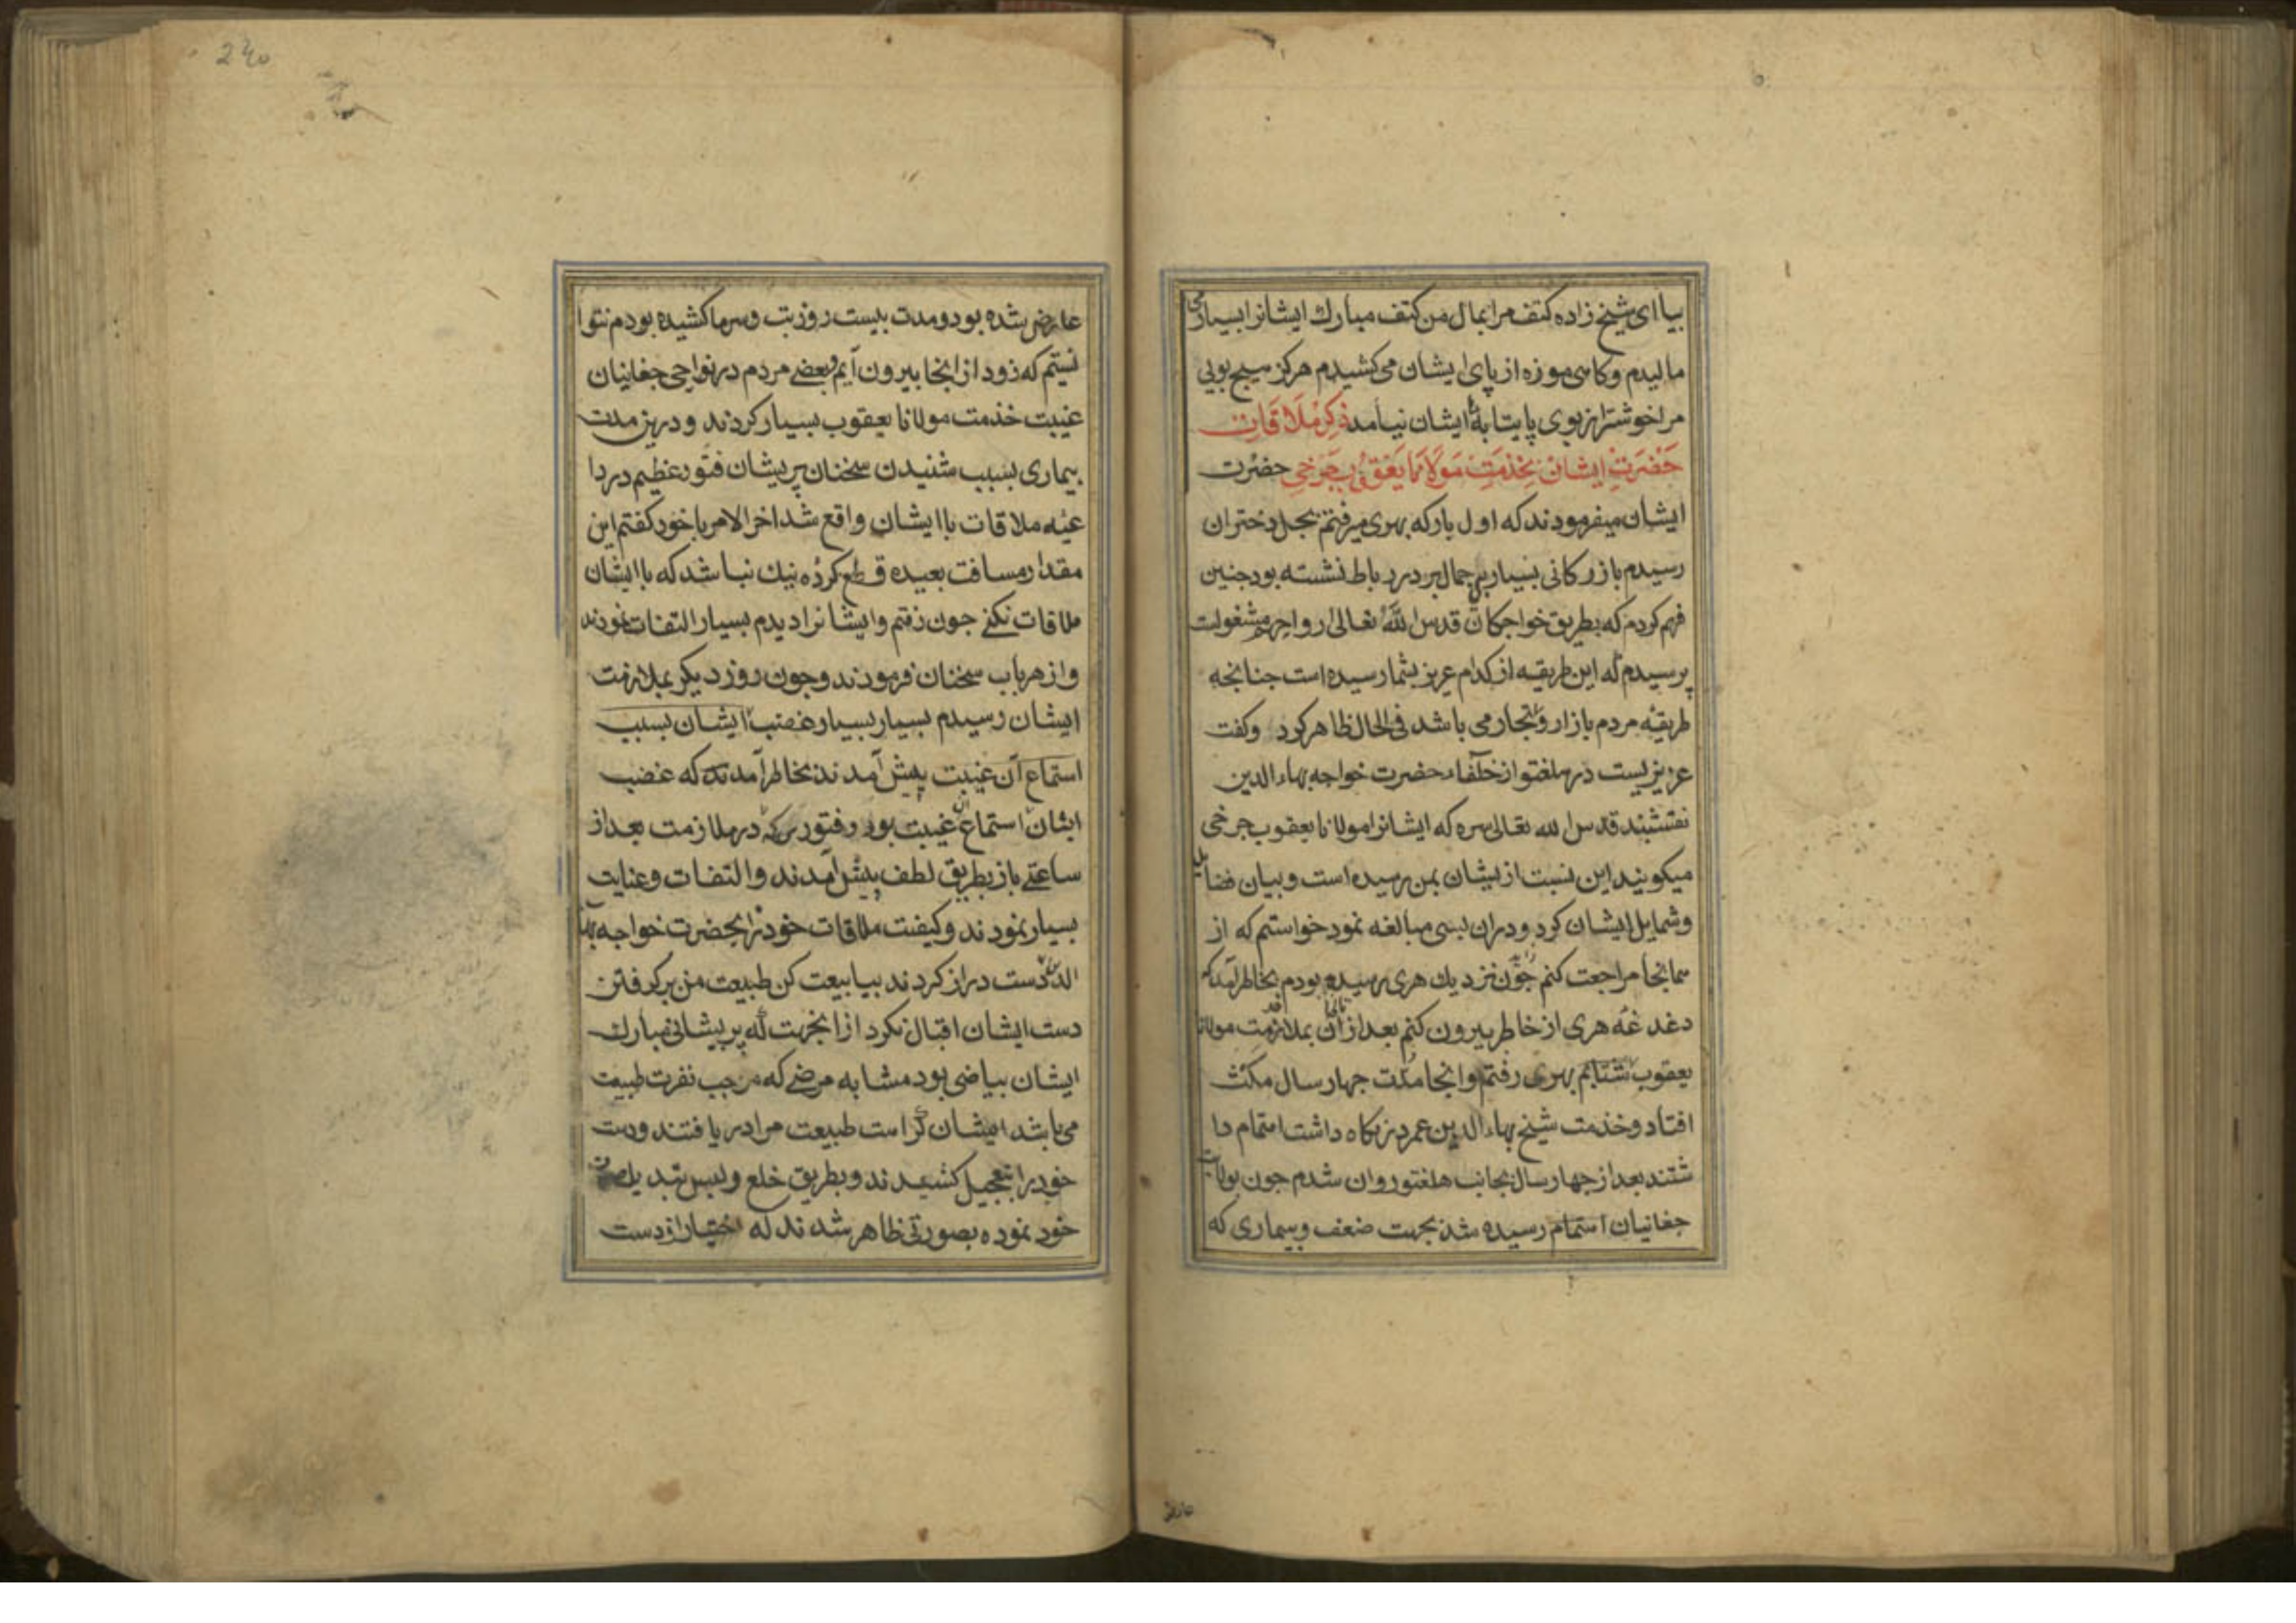 بیا ای شیخ زاده کتف مرا بمال من کتف مبارک ایشانرا بسیار می
مالیدم و کاسی موزه از پای ایشان می کشیدم هرکز هیچ بویی
مرا خوشتر از بوی پایتابهٔ ایشان نیامد ذِکرِ مُلَاقَاتِ
حَضْرَتِ ایشان بخِذمَتِ مَولَانا یَعقُوبِ جَرخی حضرت
ایشان میفرمودند که اول بار که بهری میرفتم بجل دختران
رسیدم بازرکانی بسیار بر جمال بر در رباط نشسته بود جنین
فهم کردم که بطریق خواجکان قدس الله تعالی ارواحهم مشغولست
پرسیدم که این طریقه از کدام عزیز بشما رسیده است جنانجه
طریقهٔ مردم بازار و تجار می باشد فی الحال ظاهر کرد و کفت
عزیزیست در هلغتو از خلفاء حضرت خواجه بهاء الدین
نقتشبند قدس الله تعالی سره که ایشانرا مولانا یعقوب جرخی
میکویند این نسبت ازیشان بمن رسیده است و بیان فضایل
و شمایل ایشان کرد و دران بسی مبالغه نمود خواستم که از
همانجا مراجعت کنم جون نزدیک هری رسیده بودم بخاطر آمد که
دغدغهٔ هری از خاطر بیرون کنم بعد از آن بملازمت مولانا
یعقوب شتابم بهری رفتم و انجا مدت جهار سال مکث
افتاد و خذمت شیخ بهاء الدین عمر در نکاه داشت اهتمام دا
شتند بعد از جهار سال بجانب هلغتو روان شدم جون بولایت
جغانیان رسیده شد بجهت ضعف و بیماری که
عارض شده بود و مدت بیست روز تب و سرما کشیده بودم نتوا
نستم که زود از انجا بیرون آیم بعضی مردم در نواحی جغانیان
غیبت خذمت مولانا یعقوب بسیار کردند و درین مدت
بیماری بسبب شنیدن سخنان پریشان فتور عظیم در دا
عیهٔ ملاقات با ایشان واقع شد اخر الامر با خود کفتم این
مقدار مسافت بعیده قطع کردهٔ نیک نباشد که با ایشان
ملاقات نکنی جون رفتم و ایشانرا دیدم بسیار التفات نمودند
و از هر باب سخنان فرمودند و جون روز دیکر بملازمت
ایشان رسیدم بسیار بسیار غضب ایشان بسبب
استماع آن غیبت پیش آمدند بخاطر آمد که غضب
ایشان استماع آن غیبت بود و فتوری که در ملازمت بعد از
ساعتی باز بطریق لطف پیش آمدند و التفات و عنایت
بسیار نمودند و کیفیت ملاقات خود را بحضرت خواجه بهاء
الدین دست دراز کردند بیا بیعت کن طبیعت من بر کرفتن
دست ایشان اقبال نکرد از انجهت که بر پیشانی مبارک
ایشان بیاضی بود مشابه مرضی که موجب نفرت طبیعت
می باشد ایشان کراست طبیعت مرا دریافتند و دست
خود را بتعجیل کشیدند و بطریق خلع و لبس تبدیل صورت
خود نموده بصورتی ظاهر شدند که اختیار از دست
عارض
240